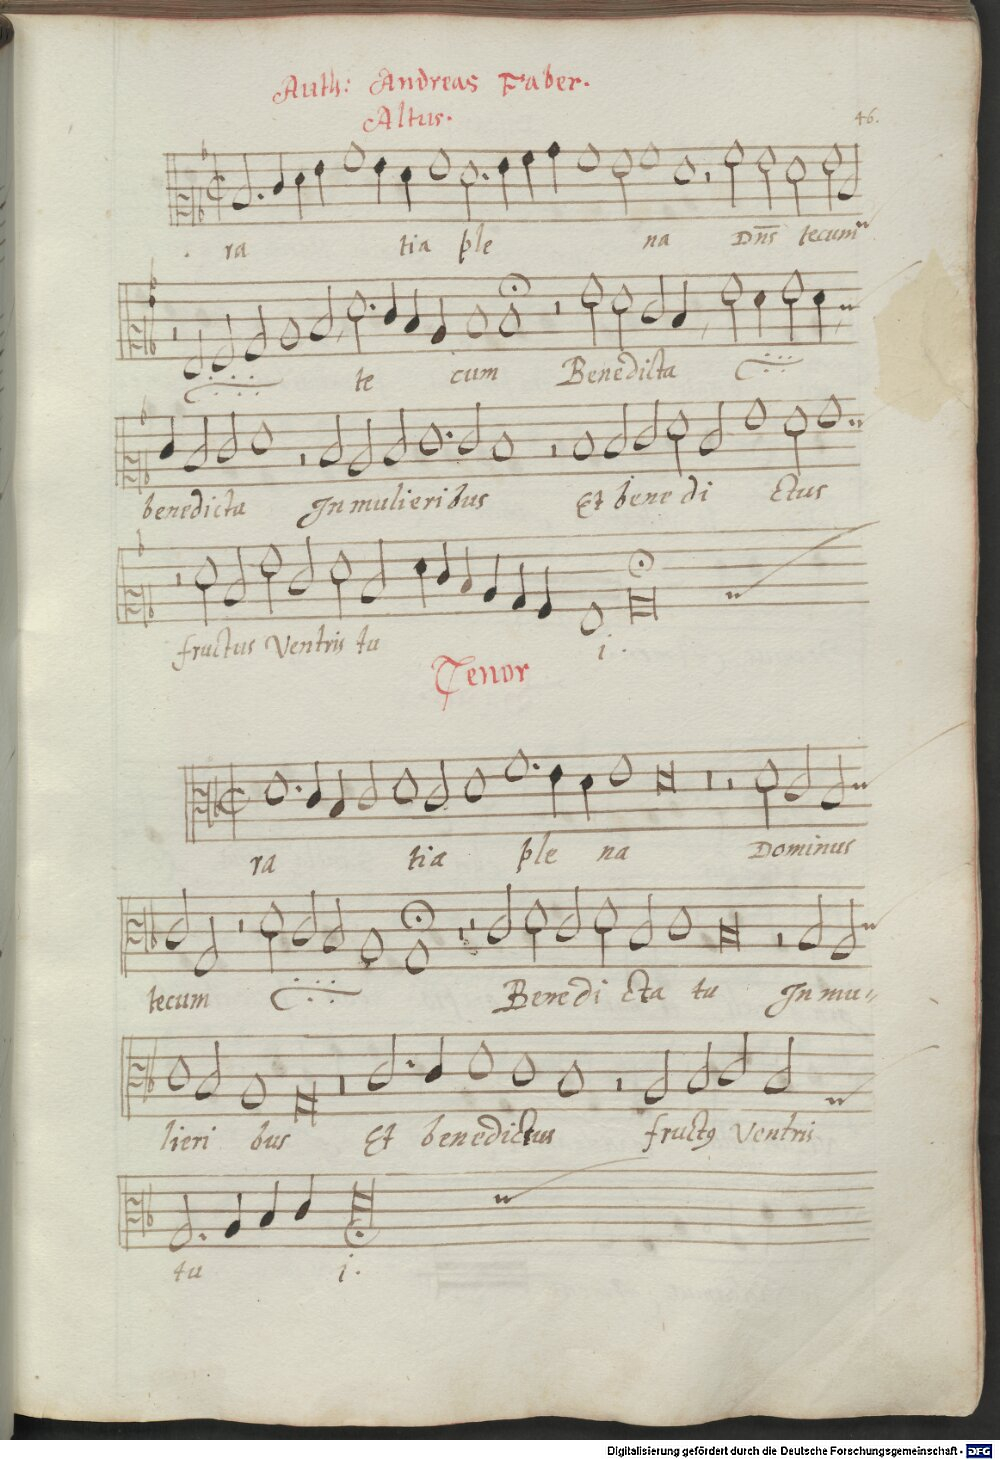 Auth: Andreas Faber.
Altus.
46.
ra tia ple na Dn̄s tecum
te cum Benedicta
benedicta In mulieribus Et bene di ctus
fructus Ventris tu i.
Tenor
ra tia ple na Dominus
tecum Bene di cta tu In mu=
lieri bus Et benedictus fructꝰ Ventris
tu i.
Digitalisierung gefördert durch die Deutsche Forschungsgemeinschaft - DFG